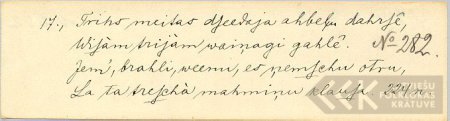 17., Trihs meitas dseedaja ahbeļu dahrsê,
Wisàm trijàm wainagi gahlê. No 282.
Jem', brahli, weenu, es ņemschu otru,
La ta treschà mahmiņu klausa. 224,
LATVIEŠU
FOLKLORAS
KRĀTUVE